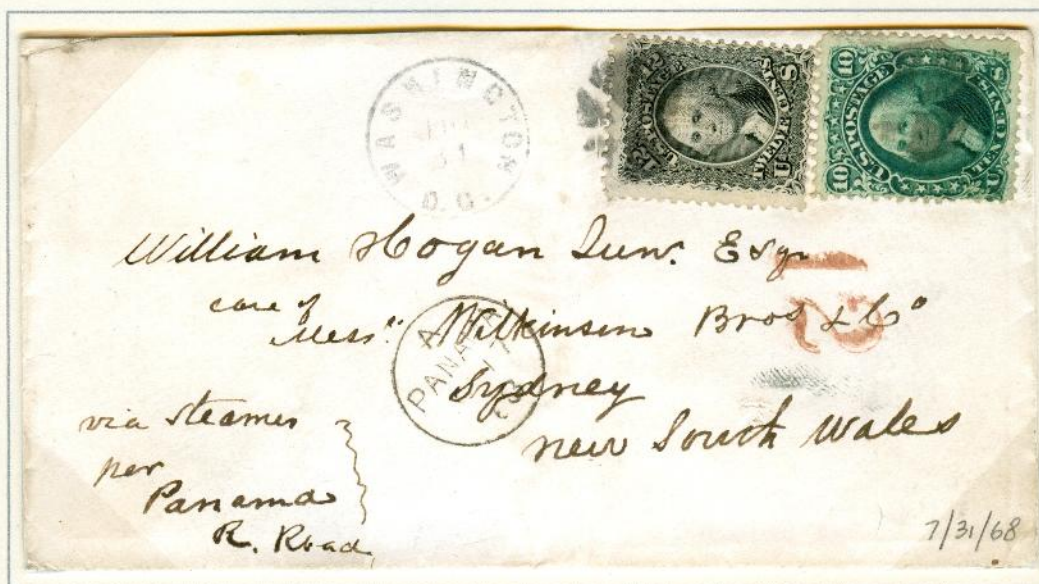 WASHINGTON
31
D.C.
12 U.S. POSTAGE 12
TWELVE CENTS
U S
10 U.S. POSTAGE 10
TEN CENTS
U S
William Hogan Junr. Esqr
care of
Messrs. Wilkinson Bros & Co
12
PANAMA
A
Sydney
New South Wales
via steamer
per
Panama
R. Road
7/31/68